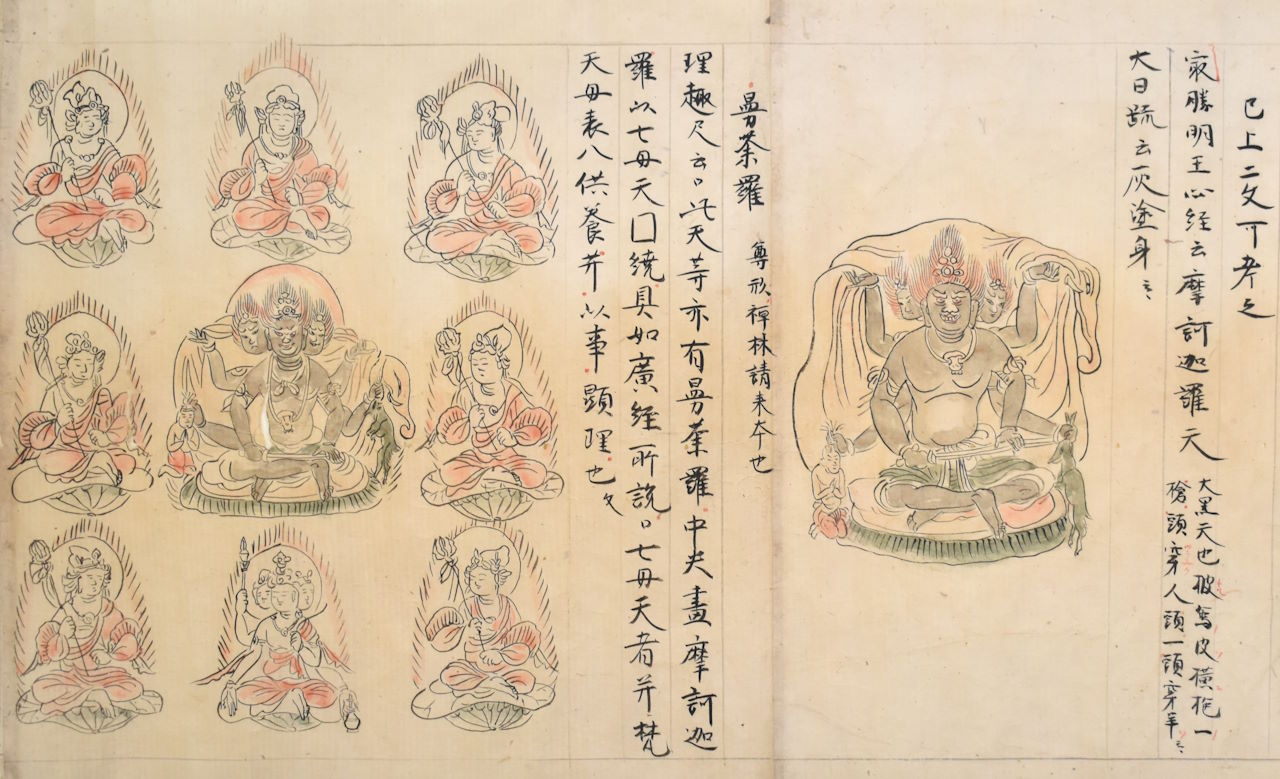 已上二文可考之
最勝明王心経云摩訶迦羅天
大黒天也披象皮横把一
槍頭穿人頭一頭穿羊云々
大日疏云灰塗身云々
曼荼羅 尊形禅林請来本也
理趣尺云口此天等亦有曼荼羅中央畫摩訶迦
羅以七母天囗繞具如廣経所説口七母天者并梵
天母表八供養并以事顕理也文